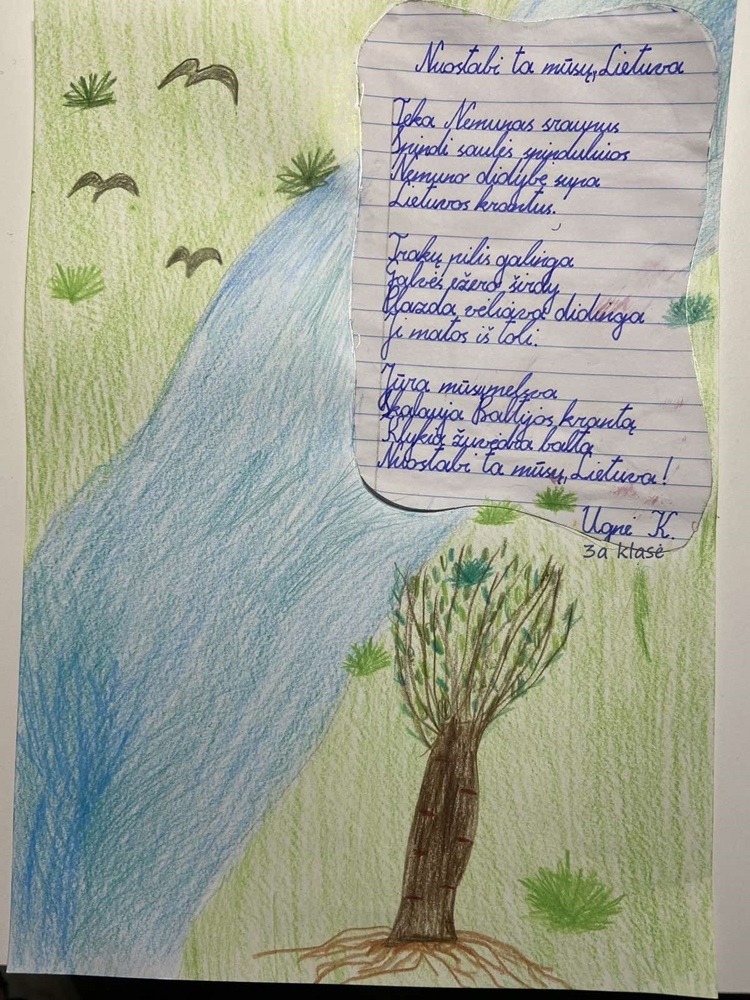 Nuostabi ta mūsų Lietuva
Teka Nemunas sraunus
Spindi saulės spinduliuos
Nemuno didybę supa
Lietuvos krantus.
Trakų pilis galinga
Galvės ežero širdy
Plazda vėliava didinga
Ji matos iš toli.
Jūra mūsų melsva
Skalauja Baltijos krantą
Klykia žuvėdra balta
Nuostabi ta mūsų Lietuva!
Ugnė K.
3a klasė